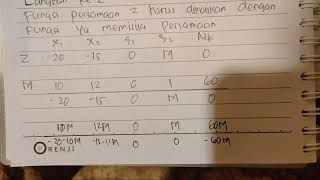 Langkah ke 2
Fungsi persamaan z harus dikalikan dengan
fungsi yg memiliki persamaan
X₁ X₂ S₁ S₂ NK
Z -20 -15 0 M 0
M 10 12 0 1 60
-20 -15 0 M 0
10M 12M 0 M 60M
-20-10M -15-12M 0 0 -60M
RENJI